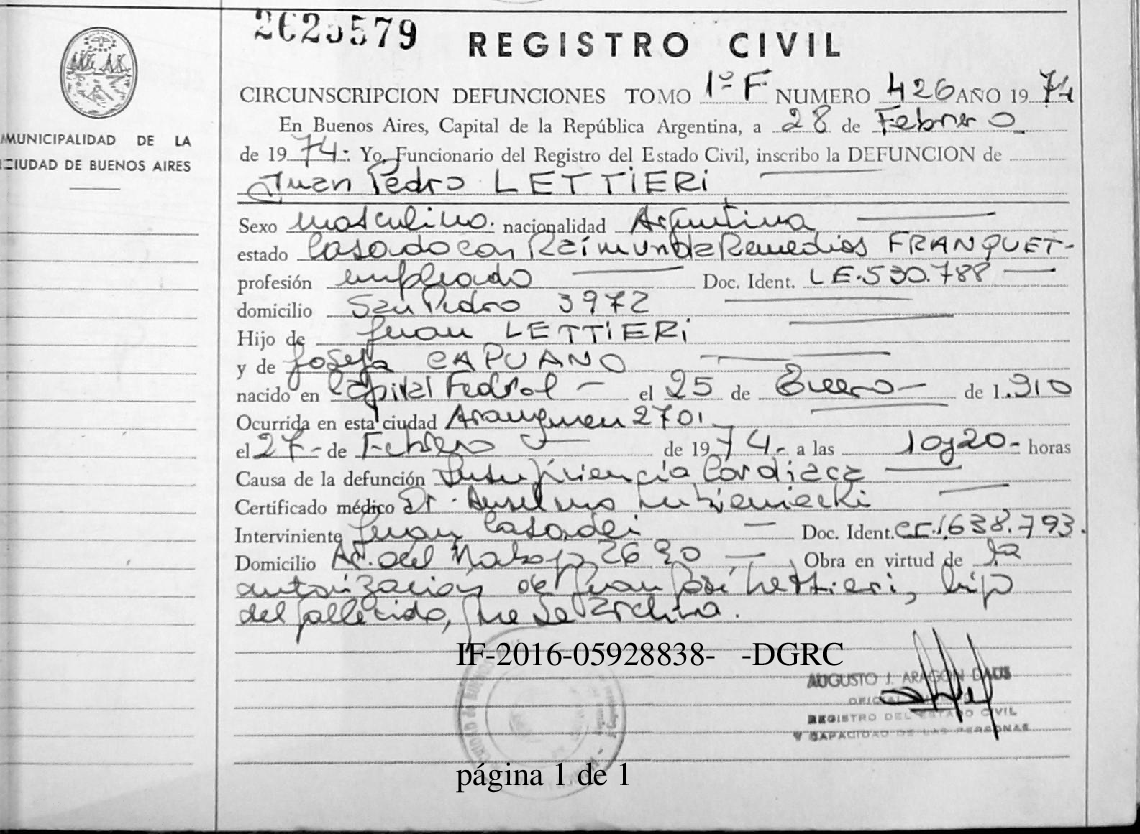 2625579
REGISTRO CIVIL
MUNICIPALIDAD DE LA
CIUDAD DE BUENOS AIRES
CIRCUNSCRIPCION DEFUNCIONES TOMO 1º F NUMERO 426 AÑO 1974
En Buenos Aires, Capital de la República Argentina, a 28 de Febrero
de 1974: Yo, Funcionario del Registro del Estado Civil, inscribo la DEFUNCION de
Juan Pedro LETTIERI
Sexo masculino. nacionalidad Argentina
estado Casado con Raimunda Remedios FRANQUET-
profesión empleado Doc. Ident. LE.530.788
domicilio San Pedro 3972
Hijo de Juan LETTIERI
y de Josefa CAPUANO
nacido en Capital Federal - el 25 de Enero - de 1.910
Ocurrida en esta ciudad Aranguren 2701
el 27 - de Febrero de 1974.- a las 10y20- horas
Causa de la defunción Insuficiencia Cardiaca
Certificado médico Dr. Anselmo
Interviniente Juan Casadei - Doc. Ident. CI.1.638.793.
Domicilio Av. del 2690 - Obra en virtud de la
autorización de Juan José Lettieri, hijo
del fallecido, que se archiva.
IF-2016-05928838- -DGRC
AUGUSTO J. ARAGON DAUS
OFICIAL
REGISTRO DEL ESTADO CIVIL
Y CAPACIDAD DE LAS PERSONAS
página 1 de 1